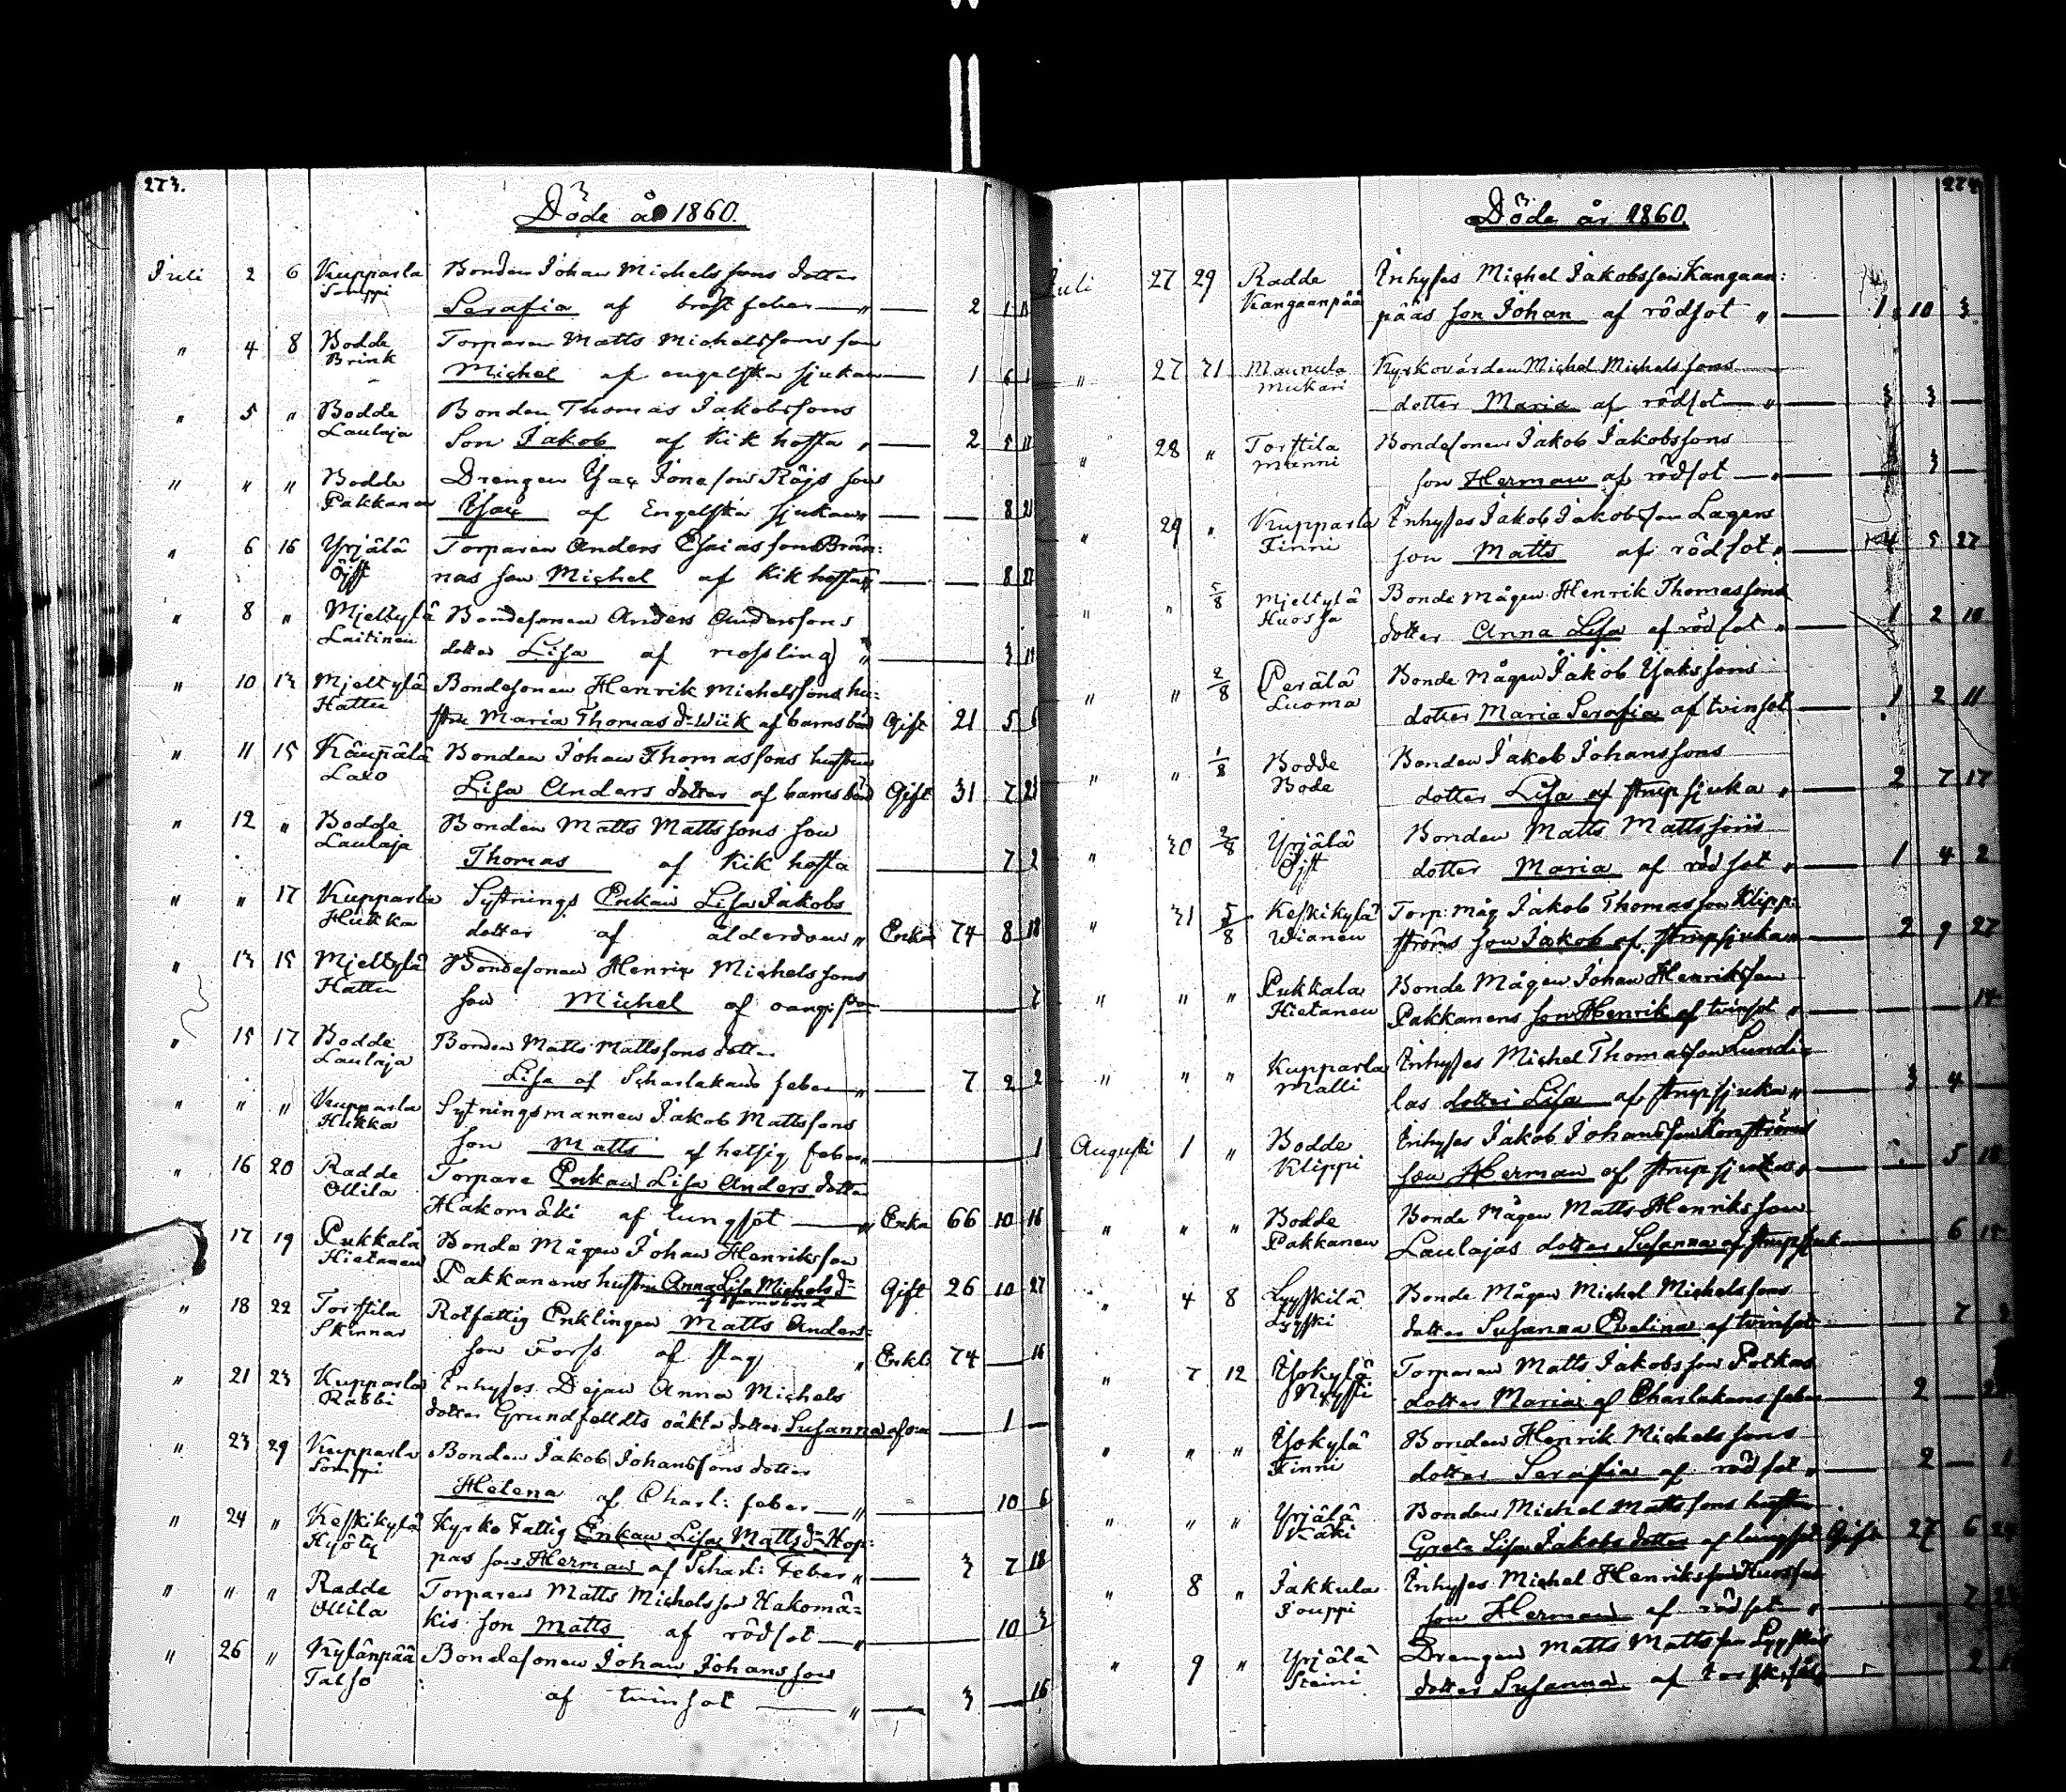 273.
Döde år 1860.
Juli 2 6 Kupparla Bonden Johan Michelssons dotter
Somppi Serafia af bröst feber " 2 1
" 4 8 Bodde Torparen Matts Michelssons son
Brink Michel af engelska sjukan 1 6 1
" 5 " Bodde Bonden Thomas Jakobssons
Laulaja Son Jakob af Kik hosta " 2 5 11
" " " Bodde Drengen Isac Jonasson Röjs son
Pakkanen Isac af Engelska sjukan " 8 21
" 6 16 Yrjälä Torparen Anders Esaiasson Brän:
Öjst nas son Michel af Kik hosta " 8 21
" 8 " Mjeltylä Bondesonen Anders Anderssons
Laitinen dotter Lisa af rossling " 3 11
" 10 13 Mjeltylä Bondesonen Henrik Michelssons hu:
Hattu stru Maria Thomas d:r Wiik af barnsbörd Gift 21 5 5
" 11 15 Käupälä Bonden Johan Thomassons hustru
Laxo Lisa Anders dotter af barnsbörd Gift 31 7 21
" 12 " Bodde Bonden Matts Mattssons son
Laulaja Thomas af Kik hosta 7 2
" " 17 Kupparla Sytnings Enkan Lisa Jakobs
Hukka dotter af ålderdom " Enka 74 8 18
" 13 15 Mjeltylä Bondesonen Henric Michelssons
Hattu son Michel af oangifven 7
" 15 17 Bodde Bonden Matts Mattssons dotter
Laulaja Lisa af Scharlakans feber " 7 2 2
" " " Kupparla Sytningsmannen Jakob Mattssons
Hukka son Matts af hetsig feber " 1
" 16 20 Radde Torpare Enkan Lisa Anders dotter
Ollila Hakomäki af lungsot " Enka 66 10 16
" 17 19 Pukkala Bonde Mågen Johan Henriksson
Hietanen Pakkanens hustru Anna Lisa Michels d:r Gift 26 10 27
af barnsbörd
" 18 22 Torstila Rotfattig Enklingen Matts Anders:
Skinnar son Forss af slag " Enkl: 74 16
" 21 23 Kupparla Inhyses Dejan Anna Michels
Rabbi dotter Grundfeldts oäkta dotter Susanna af 1
" 23 29 Kupparla Bonden Jakob Johanssons dotter
Somppi Helena af Charl: feber " 10 6
" 24 " Keskikylä Kyrko Fattig Enkan Lisa Matts d:r Hop:
Hjöty pas son Herman af Scharl: Feber " 3 7 18
" " " Radde Torparen Matts Michelsson Hakomä:
Ollila kis son Matts af rödsot " 10 3
" 26 " Kylänpää Bondesonen Johan Johansson
Talso af tvinsot " 3 16
274
Döde år 1860.
Juli 27 29 Radde Inhyses Michel Jakobsson Kangaan:
Kangaanpää pääs son Johan af rödsot " 1 10 3
" 27 31 Maunula Kyrkovärden Michel Michelssons
Mukari dotter Maria af rödsot " 3 3
" 28 " Torstila Bondesonen Jakob Jakobssons
Manni son Herman af rödsot " 3
" 29 " Kupparla Inhyses Jakob Jakobsson Lagers
Finni son Matts af rödsot " 4 5 27
" " 5/8 Mjeltylä Bonde Mågen Henrik Thomassons
Huossa dotter Anna Lisa af rödsot " 1 2 10
" " 2/8 Perälä Bonde Mågen Jakob Isakssons
Luoma dotter Maria Serafia af tvinsot 1 2 11
" " 1/8 Bodde Bonden Jakob Johanssons
Bode dotter Lisa af strupsjuka " 2 7 17
" 30 2/8 Yrjälä Bonden Matts Mattssons
Öjst dotter Maria af rödsot " 1 4 2
" 31 5/8 Keskikylä Torp: måg Jakob Thomasson Klipp:
Wianen ströms son Jakob af strupsjuka " 2 9 27
" " " Pukkala Bonde Mågen Johan Henriksson
Hietanen Pakkanens son Henrik af tvinsot " 14
" " " Kupparla Inhyses Michel Thomasson Lundi:
Malli las dotter Lisa af strupsjuka " 3 4
Augusti 1 " Bodde Inhyses Jakob Johansson
Klippi son Herman af strupsjuka " 5 18
" " " Bodde Bonde Mågen Matts Henriksson
Pakkanen Laulajas dotter Susanna af strupsjuk 6 15
" 4 8 Lyyskilä Bonde Mågen Michel Michelssons
Lyyski dotter Susanna Evelina af tvinsot 7
" 7 12 Isokylä Torparen Matts Jakobsson Potkas
Nyysti dotter Maria af Charlakans feber 2
" " " Isokylä Bonden Henrik Michelssons
Finni dotter Serafia af rödsot " 2 1
" " " Yrjälä Bonden Michel Mattssons hustru
Käki Greta Lisa Jakobs dotter af lungsot Gift 27 6
" 8 " Jakkula Inhyses Michel Henriksson Huossas
Jouppi son Herman af rödsot " 7
" 9 " Yrjälä Drengen Matts Mattsson Lyyskis
Steini dotter Susanna af 2